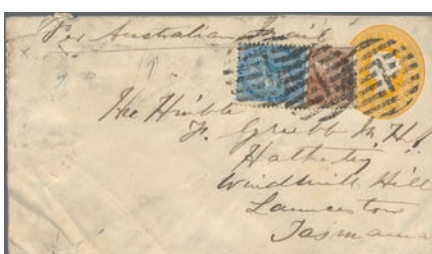 Per Australian Mail
The Honble
F. Grubb M. H
Hatherley
Windmill Hill
Launceston
Tasmania